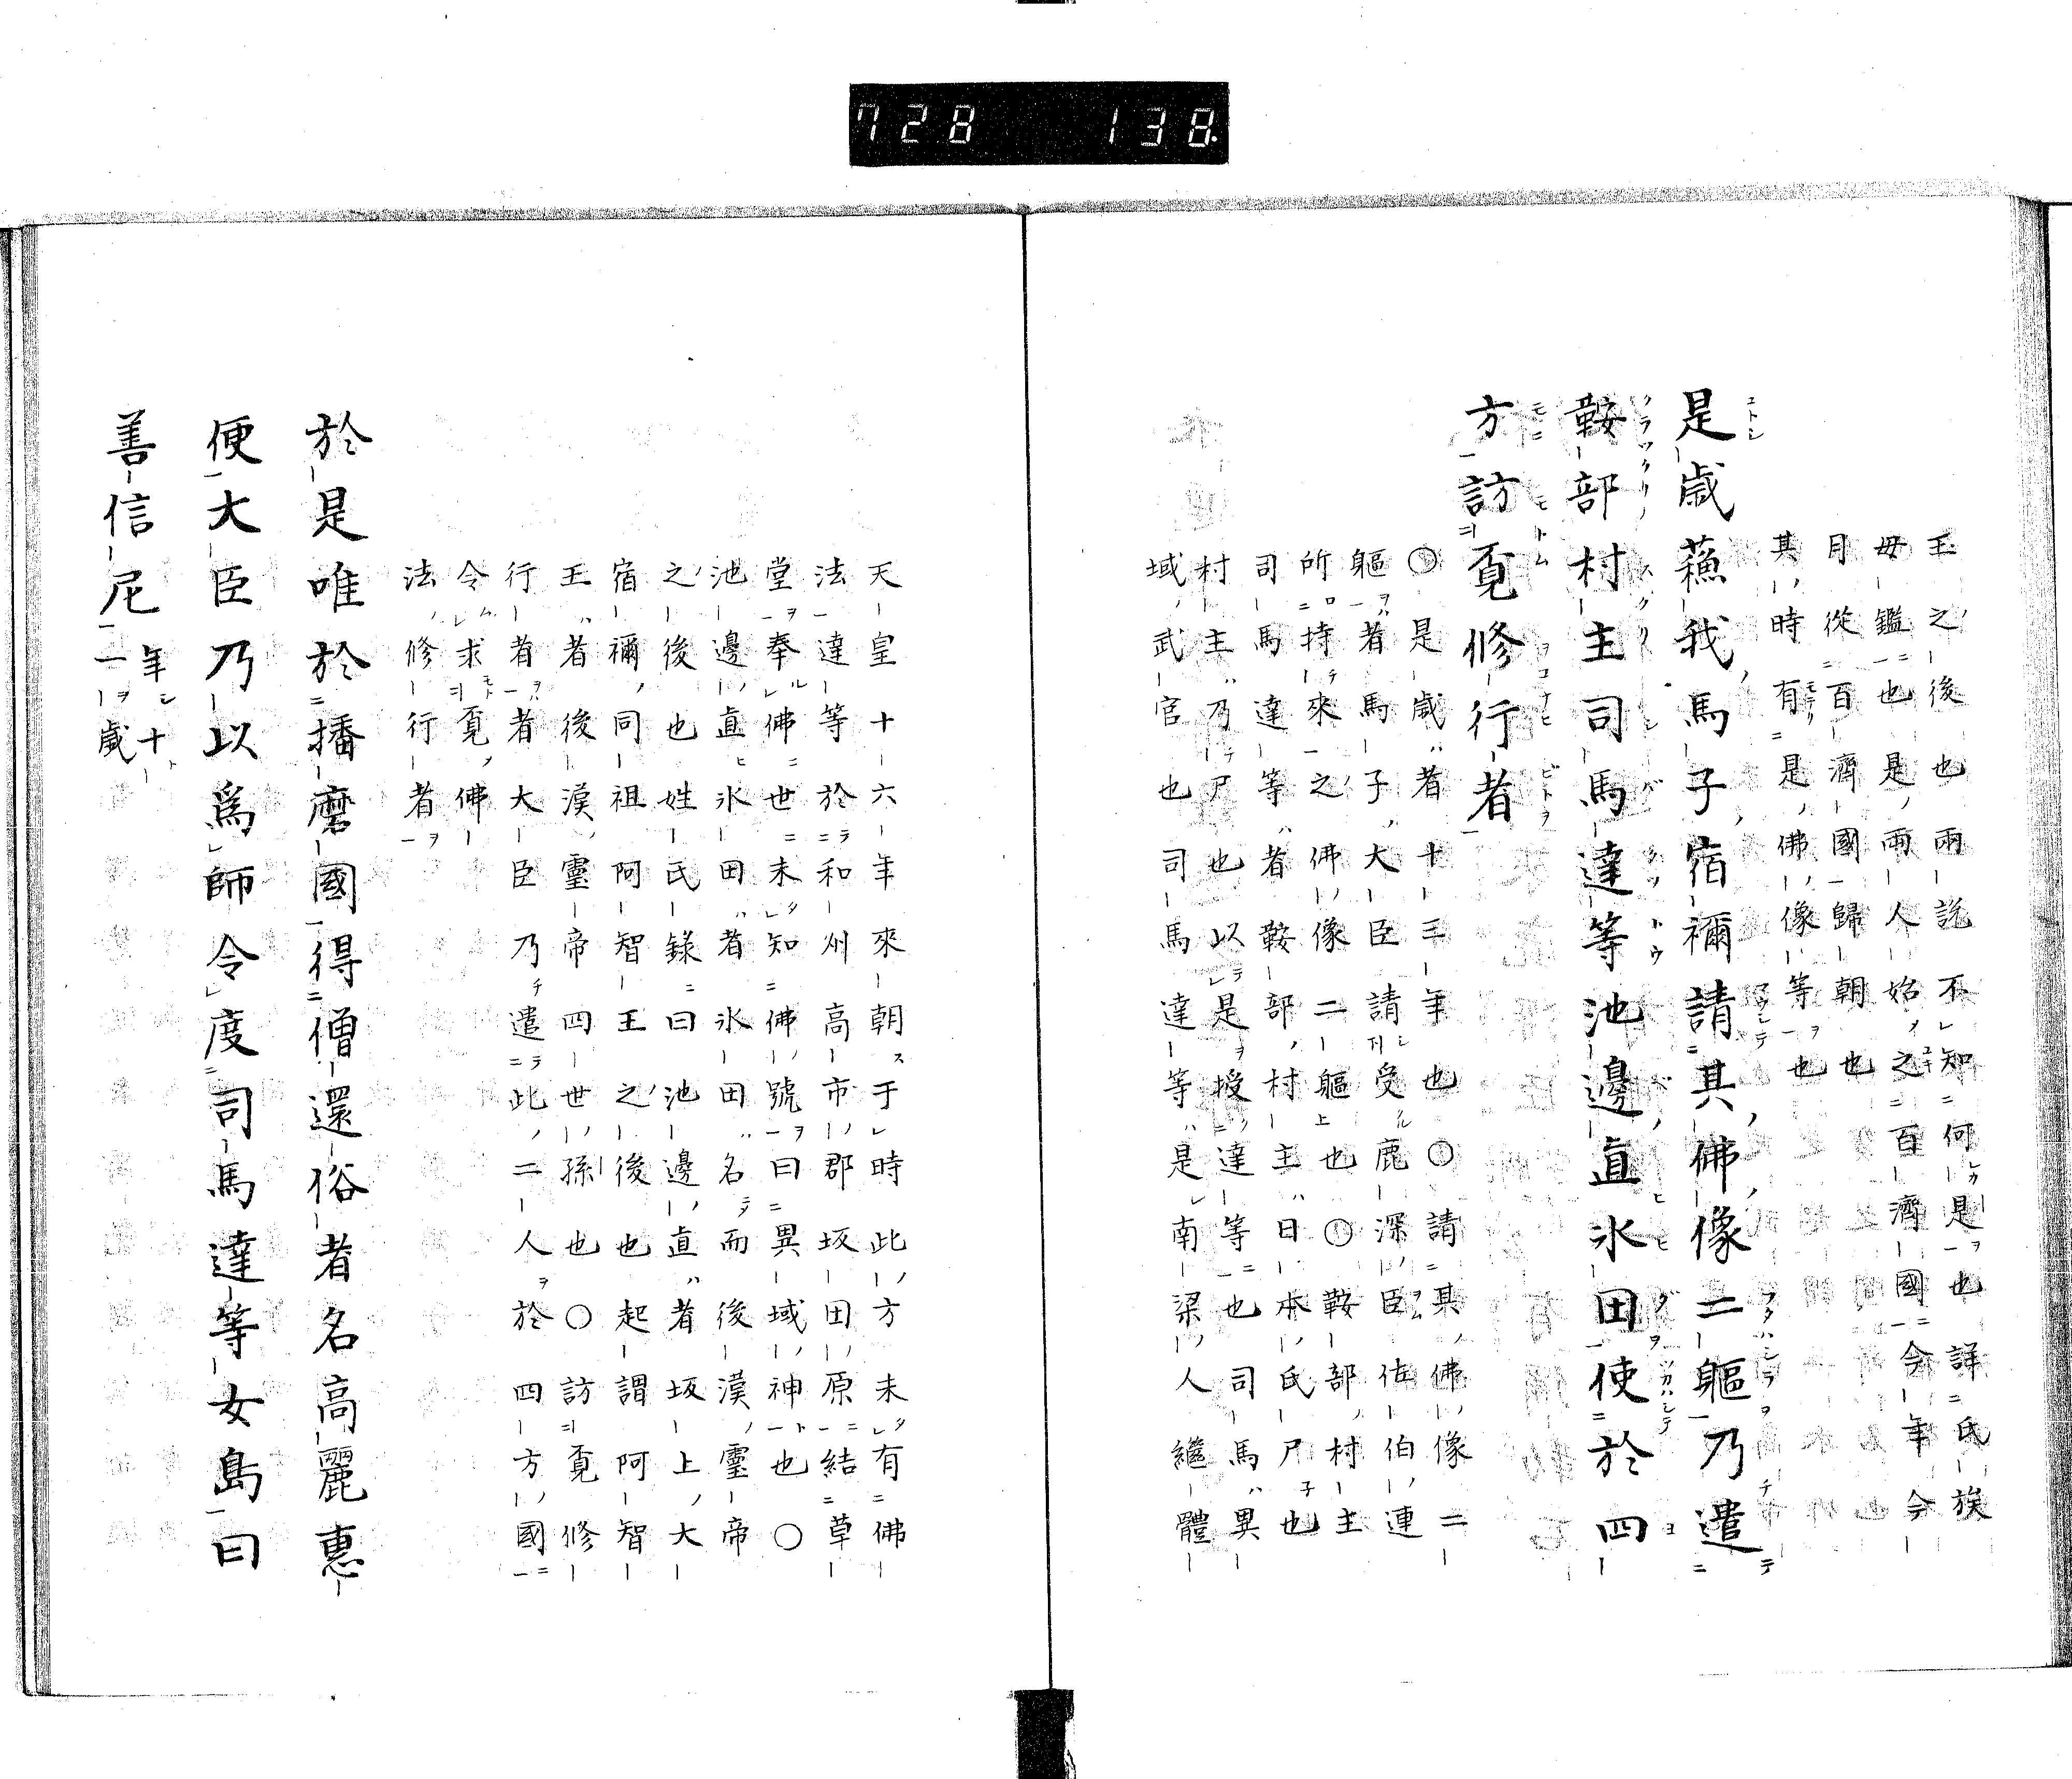 728 138
王之後也兩說不知何是也詳氏族
毋鑑也是兩人始之百濟國今年今
月從百濟國歸朝也
其時有是佛像等也
是歲蘓我馬子宿禰請其佛像二軀乃遣
鞍部村主司馬達等池邊直氷田使於四
方訪覔修行者
〇是歲者十三年也〇請其佛像二
軀者馬子大臣請受鹿深臣佐伯連
所持來之佛像二軀也〇鞍部村主
司馬達等者鞍部村主日本氏尸也
村主乃尸也以是授達等也司馬異
域武官也司馬達等是南梁人繼體
天皇十六年來朝于時此方未有佛
法達等於和州高市郡坂田原結草
堂奉佛世未知佛號曰異域神也〇
池邊直氷田者氷田名而後漢靈帝
之後也姓氏錄曰池邊直者坂上大
宿禰同祖阿智王之後也起謂阿智
王者後漢靈帝四世孫也〇訪覔修
行者者大臣乃遣此二人於四方國
令求覔佛
法修行者
於是唯於播磨國得僧還俗者名高麗惠
便大臣乃以爲師令度司馬達等女島曰
善信尼年十
一歲